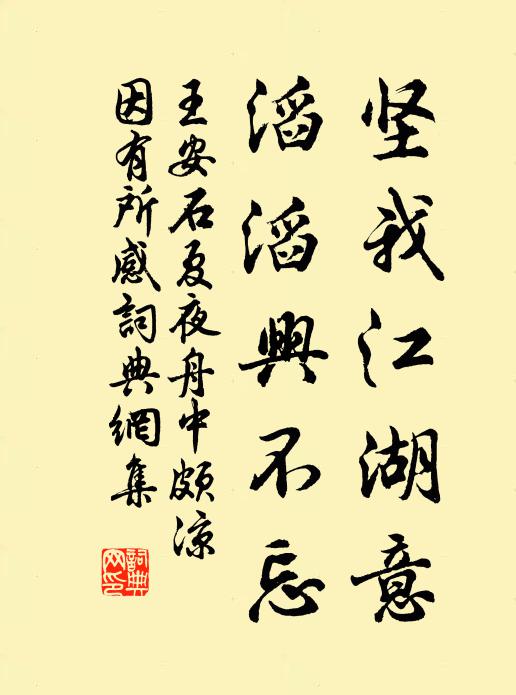 坚我江湖意
滔滔興不忘
王安石夏夜舟中颇凉
因有所感詞典網集
詞典网印